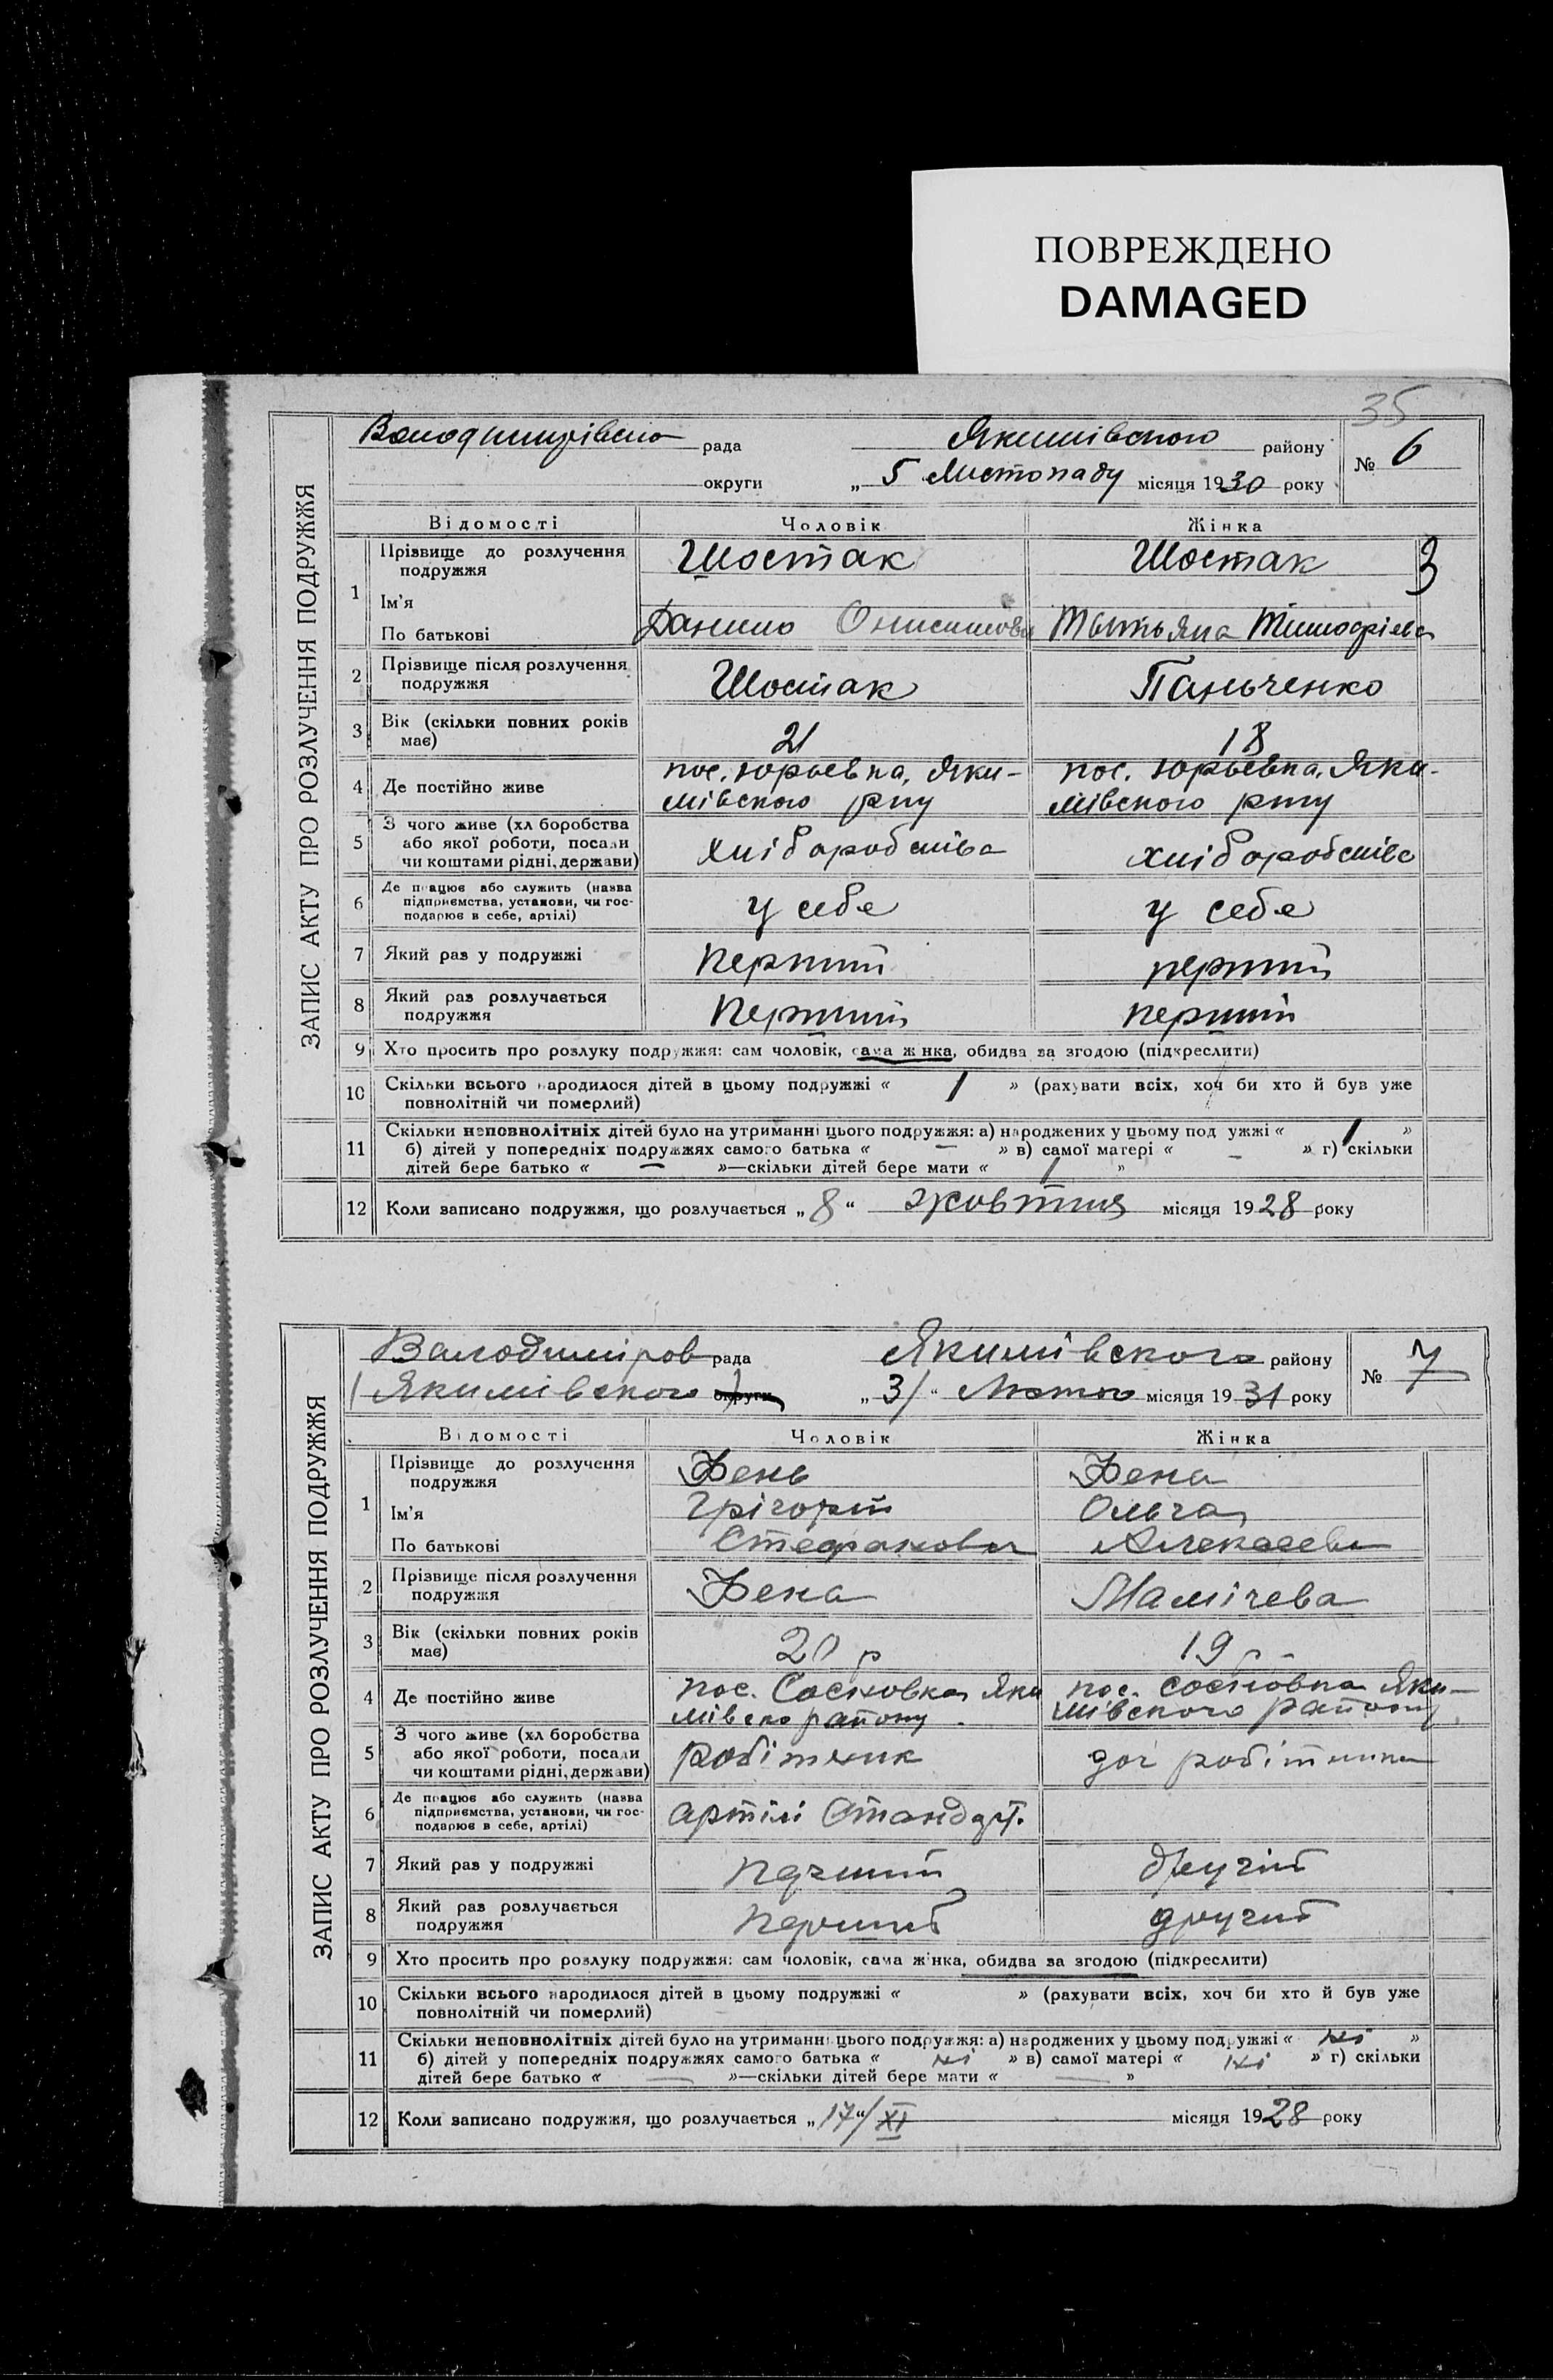 ПОВРЕЖДЕНО
DAMAGED
35
ЗАПИС АКТУ ПРО РОЗЛУЧЕННЯ ПОДРУЖЖЯ
рада Якимівського району № 6
округи „ 5 Листопаду місяця 1930 року
Відомості Чоловік Жінка
1 Прізвище до розлучення подружжя Шостак Шостак 3
Ім'я
По батькові Данило Онисимов Тетьяна Тимофієва
2 Прізвище після розлучення
подружжя Шостак Паньченко
3 Вік (скільки повних років
має) 21 18
4 Де постійно живе пос. Юрьевка, Яки- пос. Юрьевка, Яки-
мівського рну мівського рну
5 З чого живе (хл боробства
або якої роботи, посади
чи коштами рідні, держави) хліборобства хліборобства
6 Де працює або служить (назва
підприємства, установи, чи гос-
подарює в себе, артілі) у себе у себе
7 Який раз у подружжі перший перший
8 Який раз розлучається
подружжя перший перший
9 Хто просить про розлуку подружжя: сам чоловік, сама жінка, обидва за згодою (підкреслити)
10 Скільки всього народилося дітей в цьому подружжі « 1 » (рахувати всіх, хоч би хто й був уже
повнолітній чи померлий)
11 Скільки неповнолітніх дітей було на утриманні цього подружжя: а) народжених у цьому подружжі « 1 »
б) дітей у попередніх подружжях самого батька « — » в) самої матері « — » г) скільки
дітей бере батько « — »—скільки дітей бере мати « 1 »
12 Коли записано подружжя, що розлучається „ 8 “ жовтня місяця 1928 року
ЗАПИС АКТУ ПРО РОЗЛУЧЕННЯ ПОДРУЖЖЯ
Володиміров рада Якимівського району № 7
Якимівського округи „ 3/ “ Лютого місяця 1931 року
Відомості Чоловік Жінка
1 Прізвище до розлучення
подружжя Фень Фена
Ім'я Грігорій Ольга
По батькові Стефанович Алексеевн
2 Прізвище після розлучення
подружжя Фена Мамічева
3 Вік (скільки повних років
має) 20 р 19 р
4 Де постійно живе пос. Сосновка Яки пос. Сосновка Яки-
мівско району. мівського району
5 З чого живе (хл боробства
або якої роботи, посади
чи коштами рідні, держави) робітник доч робітника
6 Де працює або служить (назва
підприємства, установи, чи гос-
подарює в себе, артілі) артілі
7 Який раз у подружжі перший другій
8 Який раз розлучається
подружжя перший другий
9 Хто просить про розлуку подружжя: сам чоловік, сама жінка, обидва за згодою (підкреслити)
10 Скільки всього народилося дітей в цьому подружжі « » (рахувати всіх, хоч би хто й був уже
повнолітній чи померлий)
11 Скільки неповнолітніх дітей було на утриманні цього подружжя: а) народжених у цьому подружжі « ні »
б) дітей у попередніх подружжях самого батька « ні » в) самої матері « ні » г) скільки
дітей бере батько « — »—скільки дітей бере мати « — »
12 Коли записано подружжя, що розлучається „ 17 “/XI місяця 1928 року